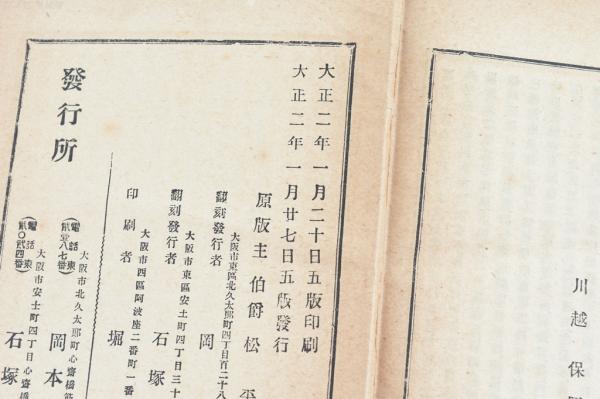 川越保
大正二年一月二十日五版印刷
大正二年一月廿七日五版發行
原版主 伯爵 松平
大阪市東區北久太郎町四丁目百二十八
翻刻發行者 岡
大阪市東區安土町四丁目三十
翻刻發行者 石塚
大阪市西區阿波座二番町一番
印刷者 堀
發行所
大阪市北久太郎町心齋橋筋
(電話東貳壹八七番) 岡本
大阪市安土町四丁目心齋橋
(電話東貳〇貳四番) 石塚